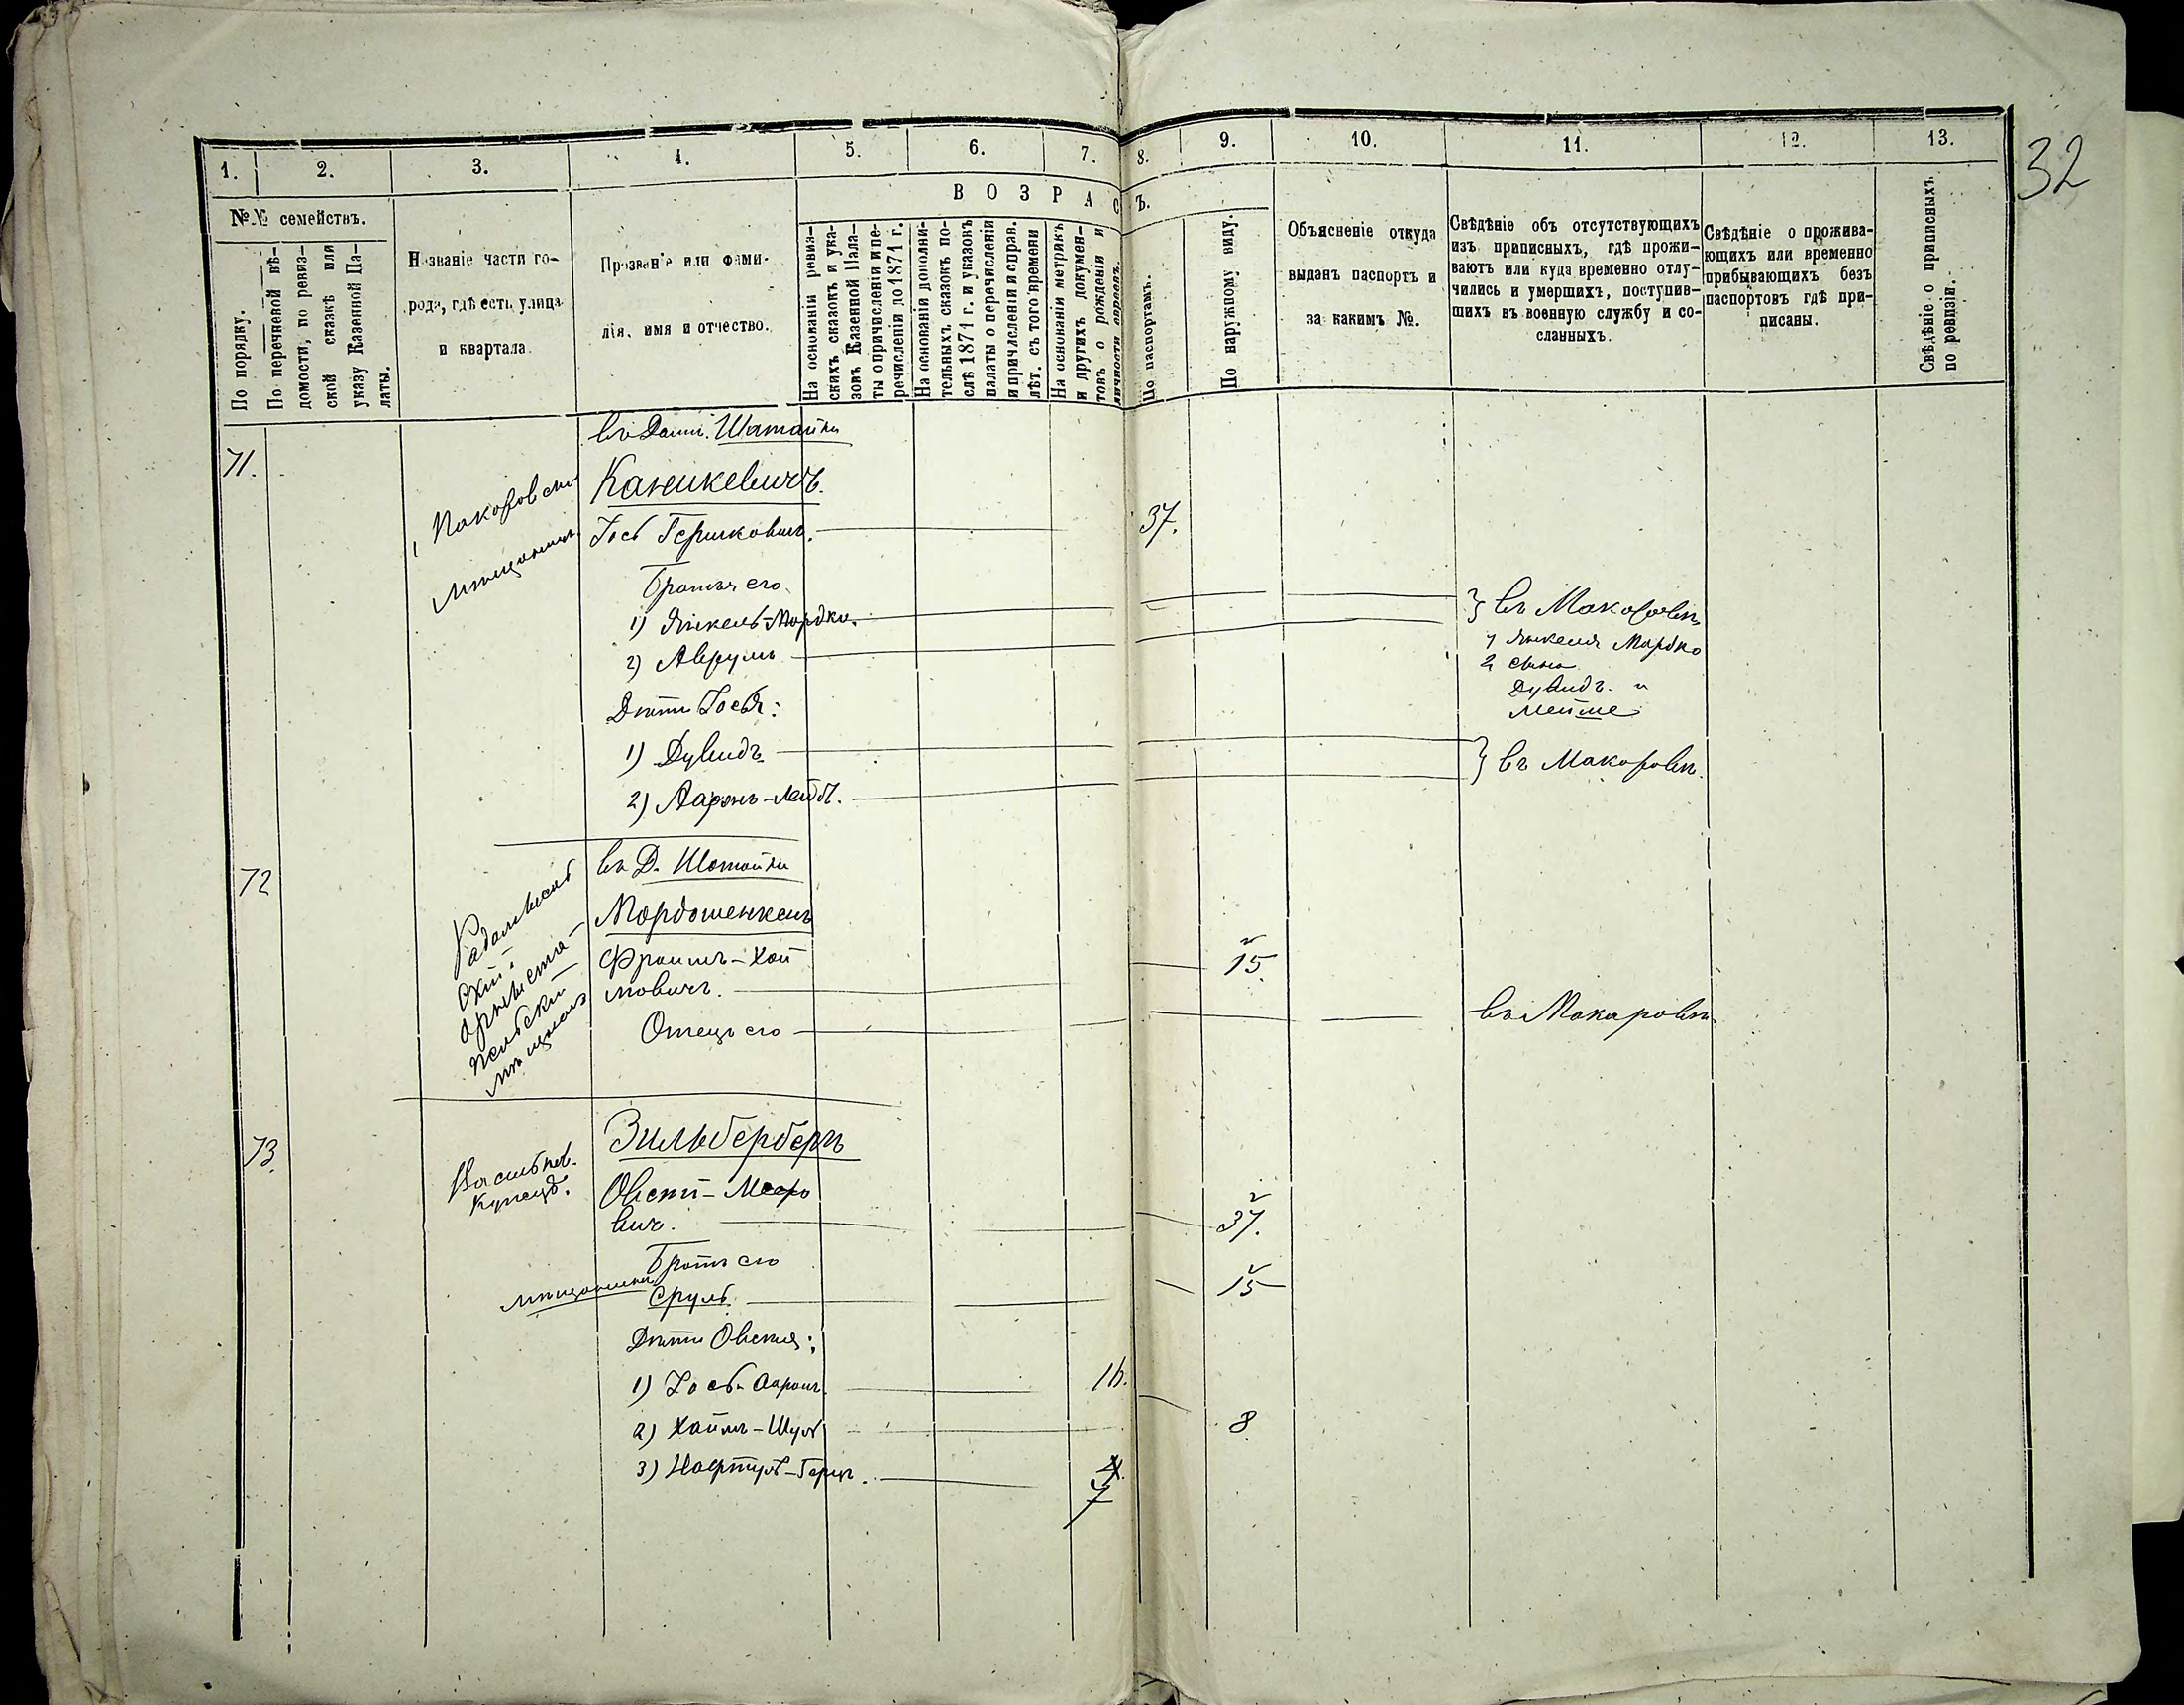 32
1. 2. 3. 4. 5. 6. 7. 8. 9. 10. 11. 12. 13.
№№ семействъ.
По порядку.
По перечневой вѣ-
домости, по ревиз-
ской сказкѣ или
указу Казенной Па-
латы.
Названіе части го-
рода, гдѣ есть улица
и квартала.
Прозваніе или фами-
лія, имя и отчество.
ВОЗРАСТЪ.
На основаніи ревиз-
скихъ сказокъ и ука-
зовъ Казенной Пала-
ты о причисленіи и пе-
речисленіи до 1871 г.
На основаніи дополни-
тельныхъ сказокъ по-
слѣ 1871 г. и указовъ
палаты о перечисленіи
и причисленіи и справ.
лѣт. съ того времени
На основаніи метрикъ
и другихъ докумен-
товъ о рожденіи и
личности евреевъ.
По паспортамъ.
По наружному виду.
Объясненіе откуда
выданъ паспортъ и
за какимъ №.
Свѣдѣніе объ отсутствующихъ
изъ приписныхъ, гдѣ прожи-
ваютъ или куда временно отлу-
чились и умершихъ, поступив-
шихъ въ военную службу и со-
сланныхъ.
Свѣдѣніе о прожива-
ющихъ или временно
прибывающихъ безъ
паспортовъ гдѣ при-
писаны.
Свѣдѣніе о приписныхъ
по ревизіи.
71.
Макоровскіе
мѣщанинъ
Каникевичъ.
Іось Гершковичъ. 37.
Братья его
1) Янкель-Мордко. } въ Макоровѣ
2) Аврумъ
у Янкеля Мордко
2 сына
Дувидъ. и
Мейше
Дѣти Іося:
1) Дувидъ } въ Макоровѣ.
2) Ааронъ-Лейбъ.
72
въ Д.
Мордошенкель
Фроимъ-Хай
мовичъ. 15
Отецъ его въ Макаровѣ
73.
Васильков.
купецъ.
Зильбербергъ
Овсей-Мееро
вичъ. 37.
Братъ его
мѣщанинъ
Сруль 15
Дѣти Овсея:
1) Іось-Ааронъ. 16.
2) Хаимъ-Шул 8.
3) Нафтулъ-Герцъ. 7